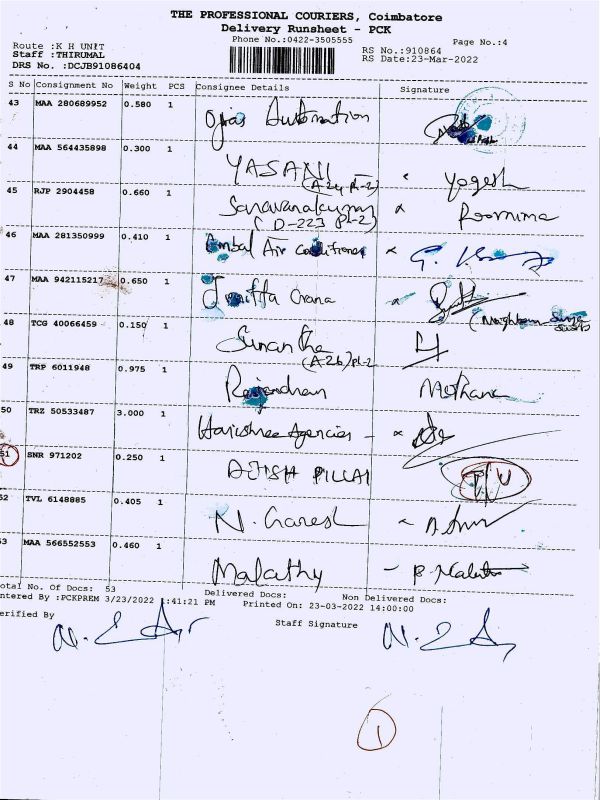 THE PROFESSIONAL COURIERS, Coimbatore
Delivery Runsheet - PCK
Phone No.:0422-3505555
Page No.:4
Route :K H UNIT
RS No.:910864
Staff :THIRUMAL
RS Date:23-Mar-2022
DRS No. :DCJB91086404
S No Consignment No Weight PCS Consignee Details Signature
43 MAA 280689952 0.580 1 Automation
44 MAA 564435898 0.300 1 YASANI Yogesh
(A-24 Pl-2)
45 RJP 2904458 0.660 1 Saravanakumar Poornima
(D-223 Pl-2)
46 MAA 281350999 0.410 1 Ambal Air Conditioner
47 MAA 942115217 0.650 1
(Neighbour
48 TCG 40066459 0.150 1
(A-26) Pl-2
49 TRP 6011948 0.975 1 Rajendran
50 TRZ 50533487 3.000 1 Harishree Agencies -
51 SNR 971202 0.250 1 AJISH PILLAI
52 TVL 6148885 0.405 1 N. Ganesh
53 MAA 566552553 0.460 1 Malathy -
otal No. Of Docs: 53 Delivered Docs: Non Delivered Docs:
ntered By :PCKPREM 3/23/2022 1:41:21 PM Printed On: 23-03-2022 14:00:00
erified By
Staff Signature
1